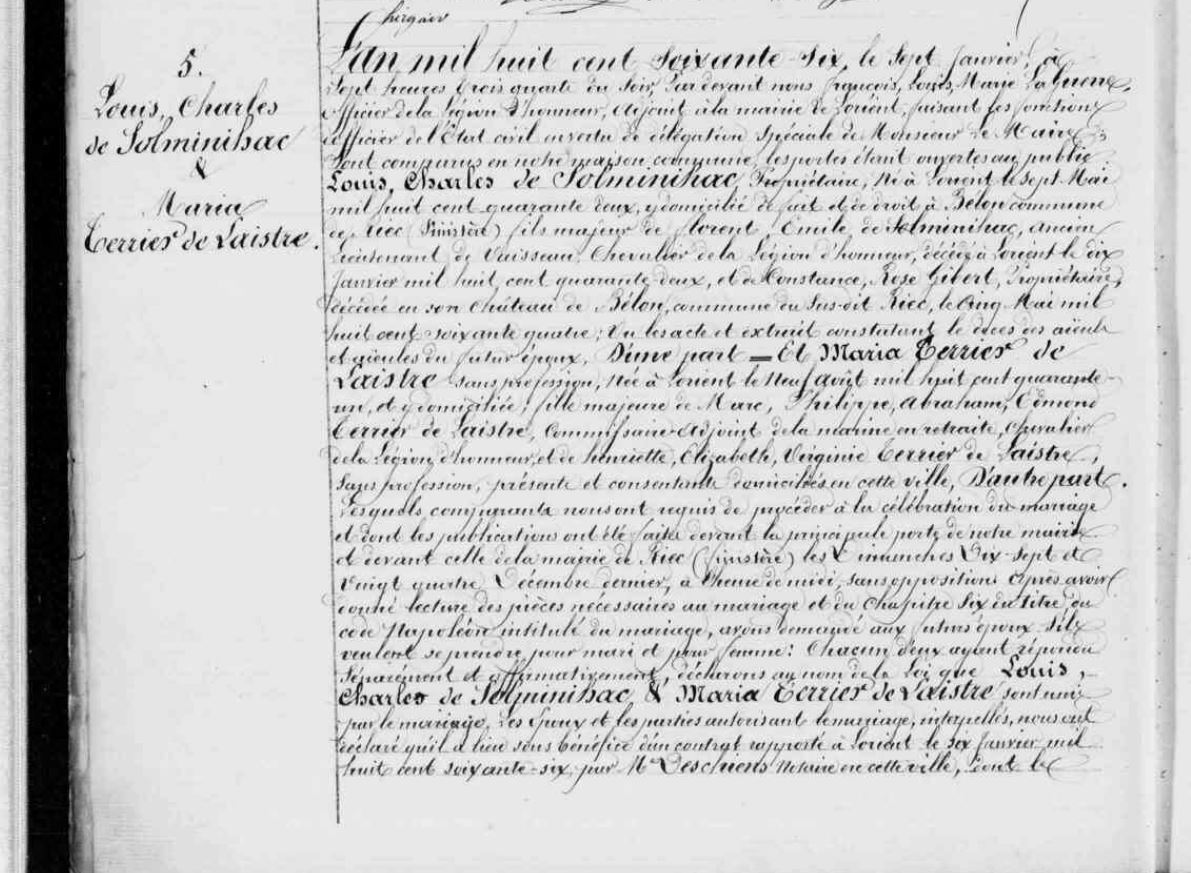 5.
Louis, Charles
de Solminihac
&
Maria
Terrier de Laistre.
L'an mil huit cent soixante-six, le sept Janvier, à
sept heures trois quarts du soir, Par devant nous françois, Louis, Marie
officier de la Légion d'honneur, adjoint à la mairie de Lorient, faisant les fonctions
d'officier de l'État civil en vertu de délégation spéciale de Monsieur Le Maire;
Sont comparus en notre maison commune, les portes étant ouvertes au public
Louis, Charles de Solminihac, Propriétaire, Né à Lorient le sept Mai
mil huit cent quarante deux, y domicilié de fait et de droit à Bélon commune
de Riec (Finistère) fils majeur de florent, Emile, de Solminihac, ancien
Lieutenant de Vaisseau, Chevalier de la Légion d'honneur, décédé à Lorient le dix
Janvier mil huit cent quarante-deux, et de Constance, Rose Gibert, Propriétaire,
décédée en son château de Bélon, commune du Sus-dit Riec, le Cinq Mai mil
huit cent soixante quatre; Vu les acte et extrait constatant le décès des aïeuls
et aïeules du futur époux, D'une part — Et Maria Terrier de
Laistre sans profession, Née à Lorient le Neuf août mil huit cent quarante-
un, et y domiciliée; fille majeure de Marc, Philippe, Abraham, Edmond
Terrier de Laistre, Commissaire-adjoint de la marine en retraite, Chevalier
de la Légion d'honneur, et de henriette, Elizabeth, Virginie Terrier de Laistre,
sans profession, présente et consentante domiciliés en cette ville, D'autre part.
Lesquels comparants nous ont requis de procéder à la célébration du mariage
et dont les publications ont été faites devant la principale porte de notre mairie
et devant celle de la mairie de Riec (finistère) les Dimanches Dix-sept et
Vingt quatre Décembre dernier, à l'heure de midi, sans opposition. Après avoir
donné lecture des pièces nécessaires au mariage et du chapitre Six du titre du
code Napoléon intitulé du mariage, avons demandé aux futurs époux s'ils
veulent se prendre pour mari et pour femme: Chacun d'eux ayant répondu
séparément et affirmativement, déclarons au nom de la Loi que Louis,
Charles de Solminihac & Maria Terrier de Laistre sont unis
par le mariage, Les Epoux et les parties autorisant le mariage, interpellés, nous ont
déclaré qu'il a lieu sous bénéfice d'un contrat rapporté à Lorient le six Janvier mil
huit cent soixante-six, par Me Deschiens Notaire en cette ville, dont le